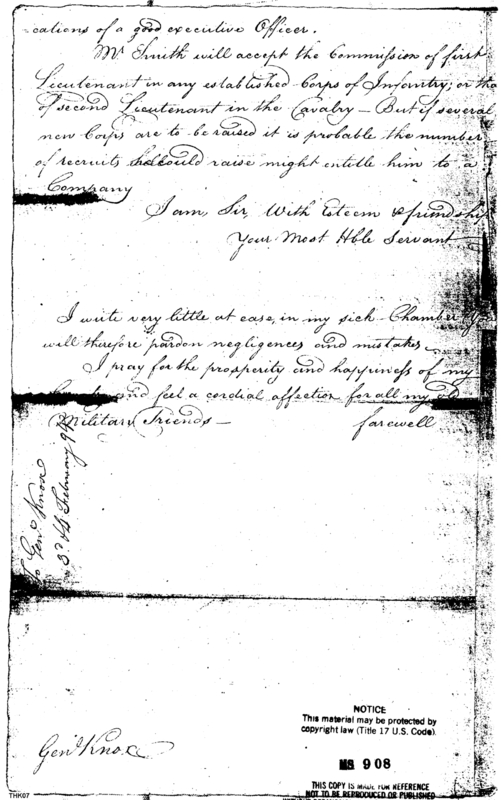 cations of a good executive Officer.
Mr Smith will accept the Commission of first
Lieutenant in any established Corps of Infantry; or tha
of second Lieutenant in the Cavalry — But if several
new Corps are to be raised it is probable the number
of recruits he could raise might entitle him to a
Company
I am, Sir, With Esteem & friendship
Your Most Hble Servant
I write very little at ease, in my sick Chamber you
will therefore pardon negligences and mistakes
I pray for the prosperity and happiness of my
and feel a cordial affection for all my old
Military Friends — farewell
To Genl Knox
3d &4 February 92
Genl Knox
NOTICE
This material may be protected by
copyright law (Title 17 U.S. Code).
MS 908
THIS COPY IS MADE FOR REFERENCE
NOT TO BE REPRODUCED OR PUBLISHED
THK07